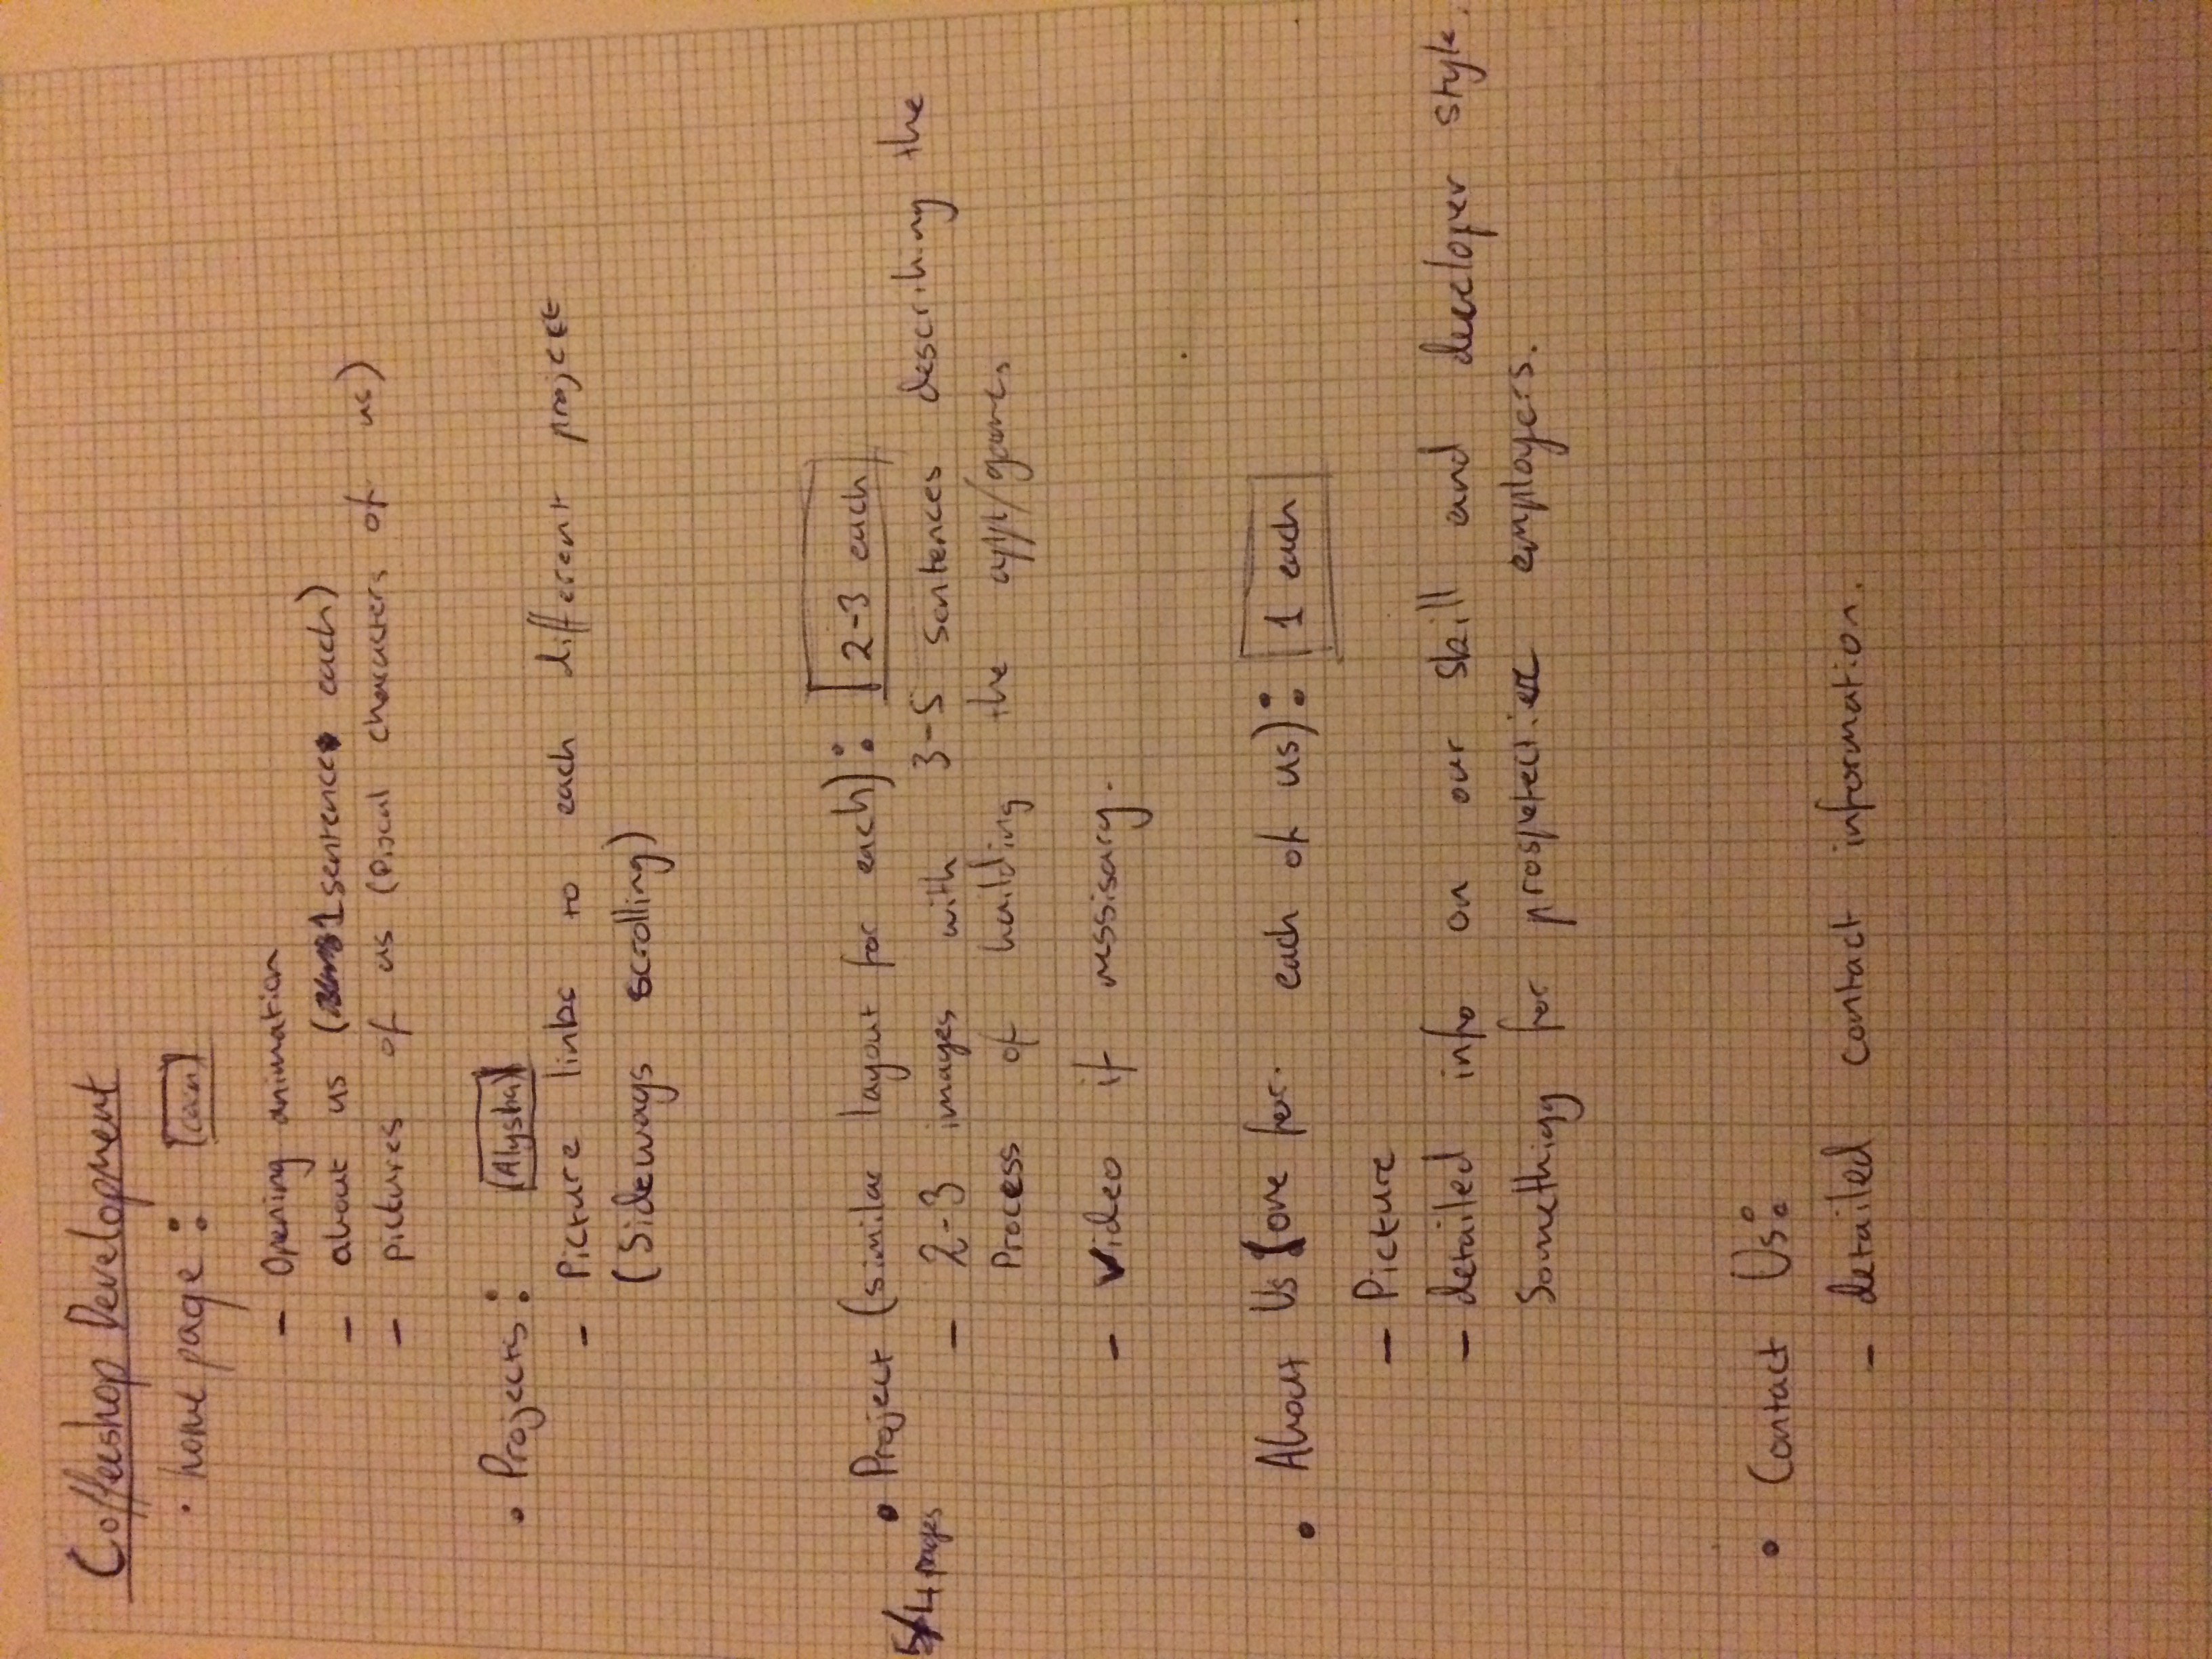 Coffeeshop Development
· home page :
- Opening animation
- about us (1 sentence each)
- pictures of us (Pixal characters of us)
• Projects : Alysha
- Picture links to each different project
(Sideways scrolling)
• Project (similar layout for each) : 2-3 each
5/4 pages
- 2-3 images with 3-5 sentences describing the
Process of building the app/game.
- Video if nessisary.
• About Us (one for each of us) : 1 each
- Picture
- detailed info on our skill and developer style.
Something for employers.
• Contact Us:
- detailed contact information.